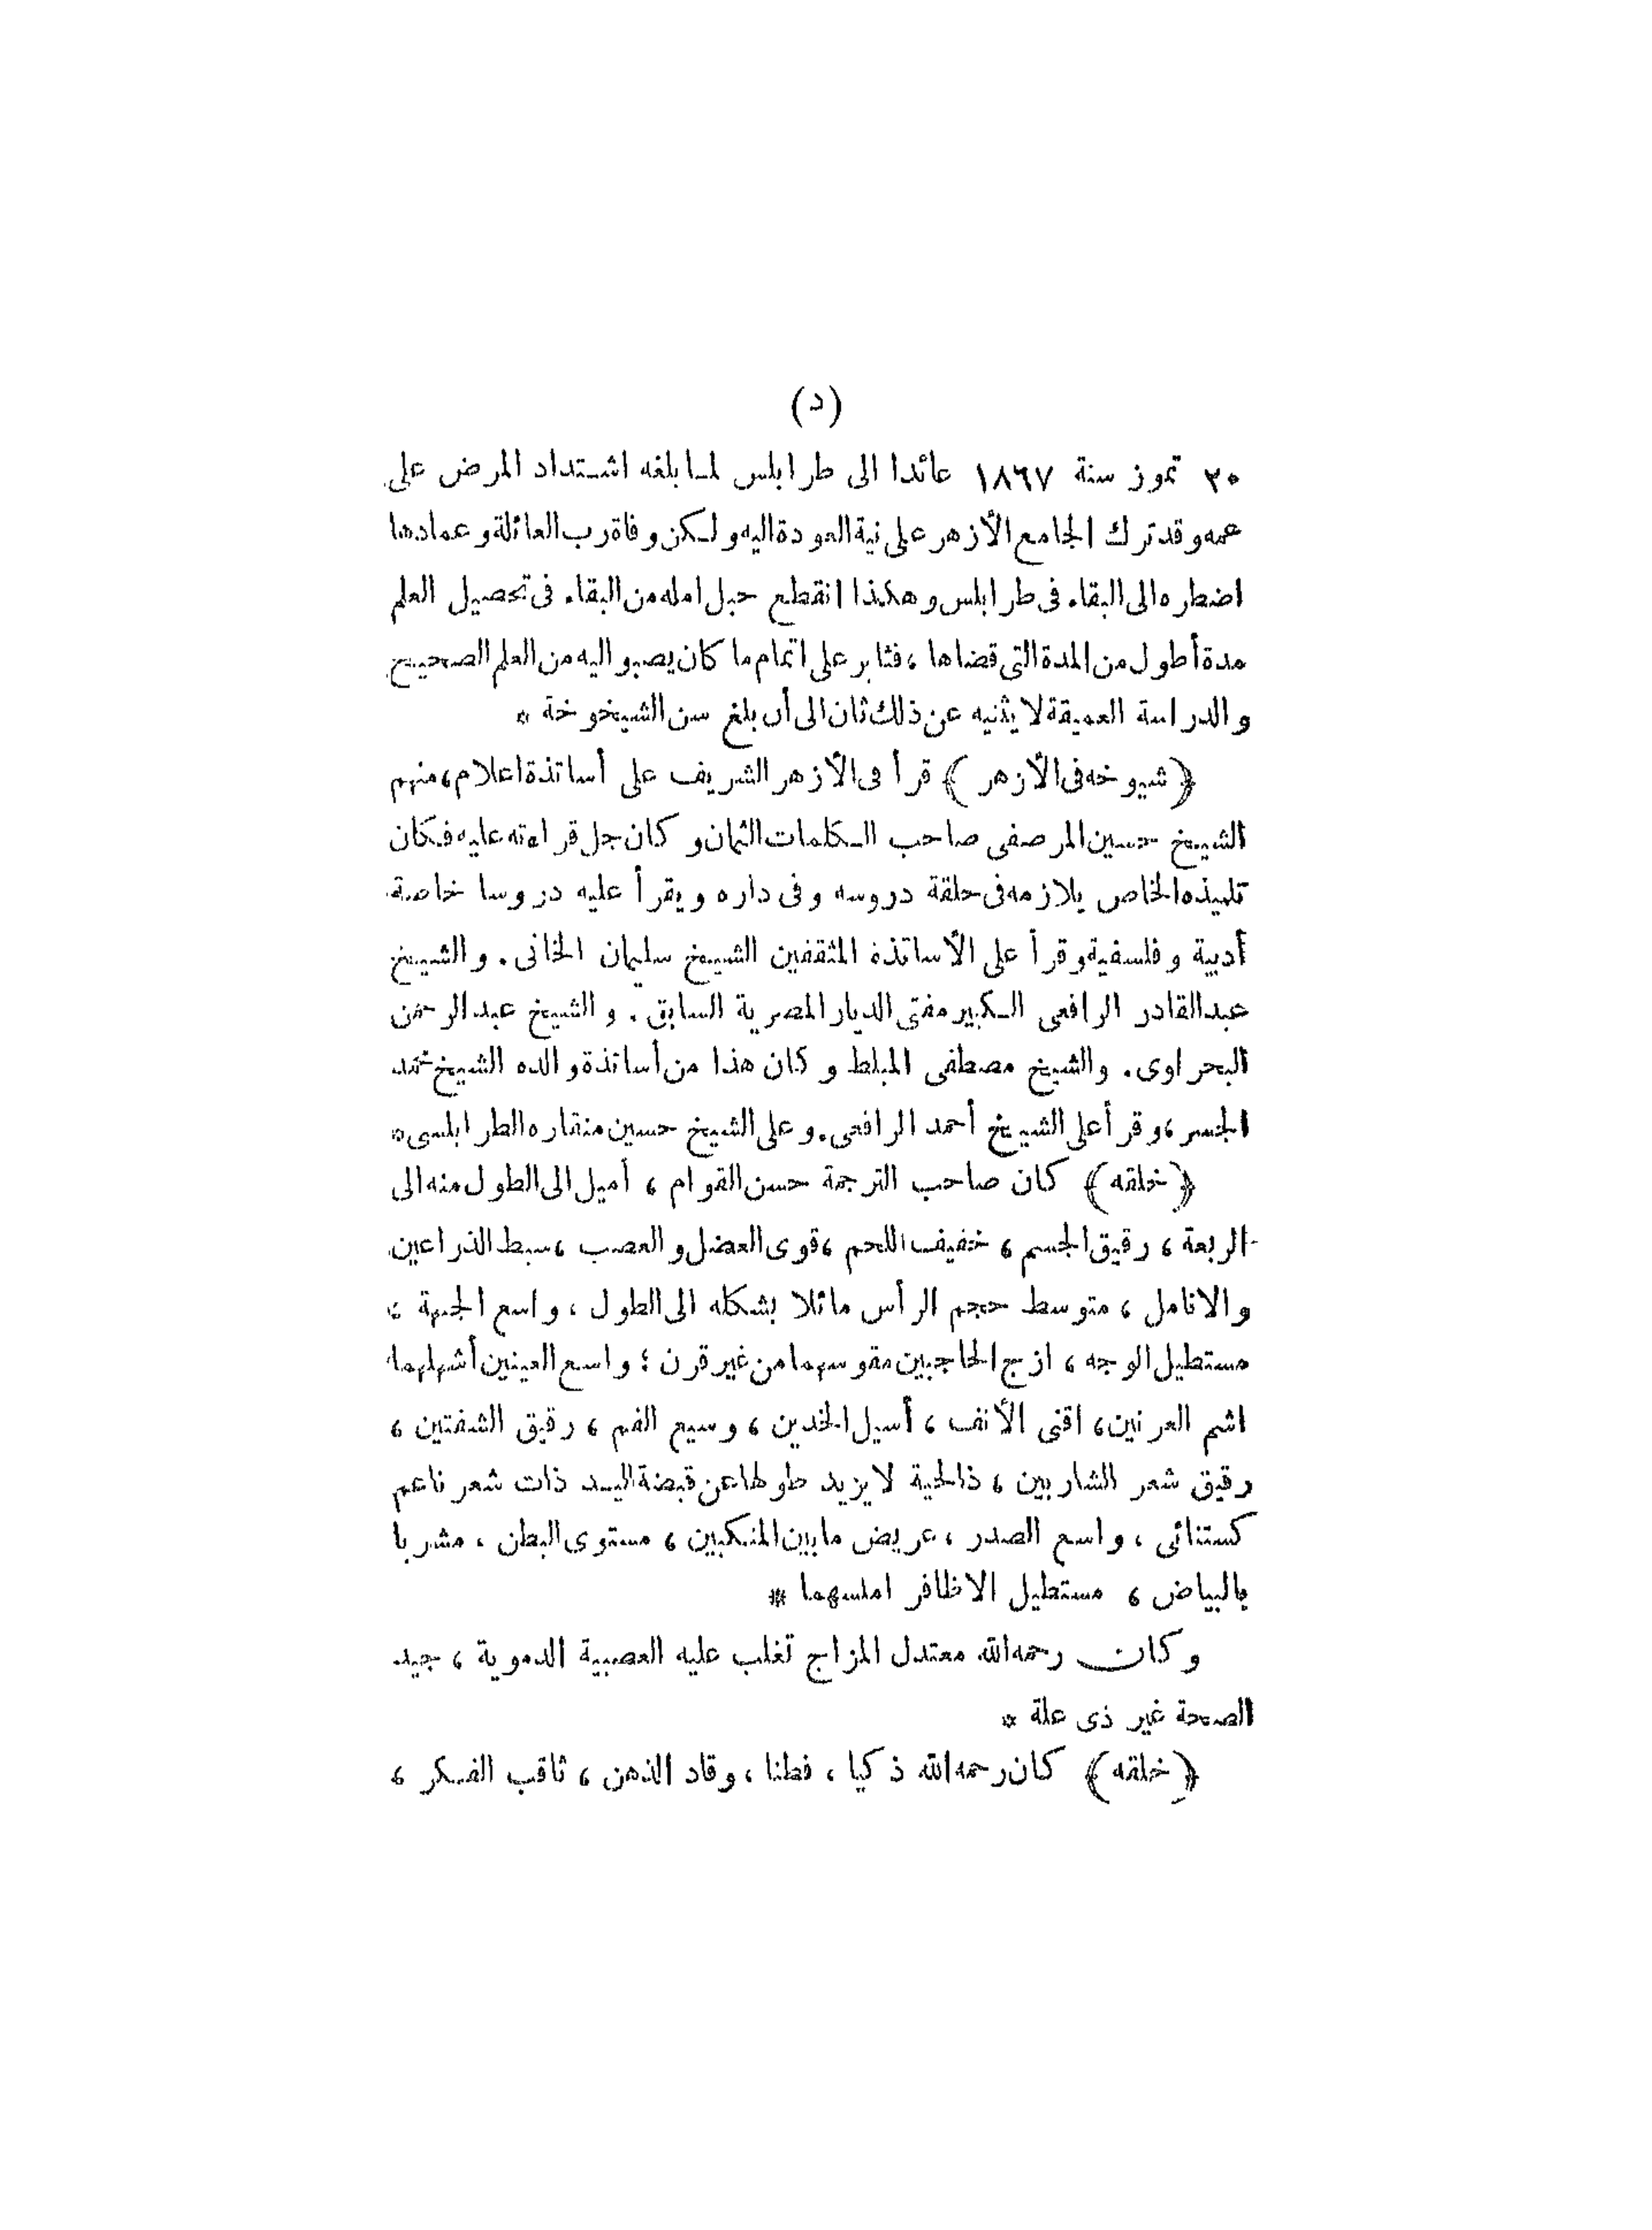 (د)
٢٠ تموز سنة ١٨٦٧ عائدا الى طرابلس لما بلغه اشتداد المرض على
عمه وقد ترك الجامع الأزهر على نية العودة اليه ولكن وفاة رب العائلة وعمادها
اضطره الى البقاء فى طرابلس وهكذا انقطع حبل امله من البقاء فى تحصيل العلم
مدة أطول من المدة التى قضاها ، فثابر على اتمام ما كان يصبو اليه من العلم الصحيح
والدراسة العميقة لا يثنيه عن ذلك ثان الى أن بلغ سن الشيخوخة *
﴿ شيوخه فى الأزهر ﴾ قرأ فى الأزهر الشريف على أساتذة اعلام ، منهم
الشيخ حسين المرصفى صاحب الكلمات الثمان وكان جل قراءته عليه فكان
تلميذه الخاص يلازمه فى حلقة دروسه وفى داره ويقرأ عليه دروسا خاصة
أدبية وفلسفية وقرأ على الأساتذة المثقفين الشيخ سليمان الخانى . والشيخ
عبد القادر الرافعى الكبير مفتى الديار المصرية السابق . والشيخ عبد الرحمن
البحراوى . والشيخ مصطفى المبلط وكان هذا من أساتذة والده الشيخ محمد
الجسر ، وقرأ على الشيخ أحمد الرافعى . وعلى الشيخ حسين منقاره الطرابلسى *
﴿ خلقه ﴾ كان صاحب الترجمة حسن القوام ، أميل الى الطول منه الى
الربعة ، رقيق الجسم ، خفيف اللحم ، قوى العضل والعصب ، سبط الذراعين
والانامل ، متوسط حجم الرأس مائلا بشكله الى الطول ، واسع الجبهة ،
مستطيل الوجه ، ازج الحاجبين مقوسهما من غير قرن ؛ واسع العينين أشهلهما
اشم العرنين ، اقنى الأنف ، أسيل الخدين ، وسيع الفم ، رقيق الشفتين ،
رقيق شعر الشاربين ، ذا لحية لا يزيد طولها عن قبضة اليد ذات شعر ناعم
كستنائى ، واسع الصدر ، عريض ما بين المنكبين ، مستوى البطن ، مشربا
بالبياض ، مستطيل الاظافر املسهما *
وكان رحمه الله معتدل المزاج تغلب عليه العصبية الدموية ، جيد
الصحة غير ذى علة *
﴿ خلقه ﴾ كان رحمه الله ذكيا ، فطنا ، وقاد الذهن ، ثاقب الفكر ،